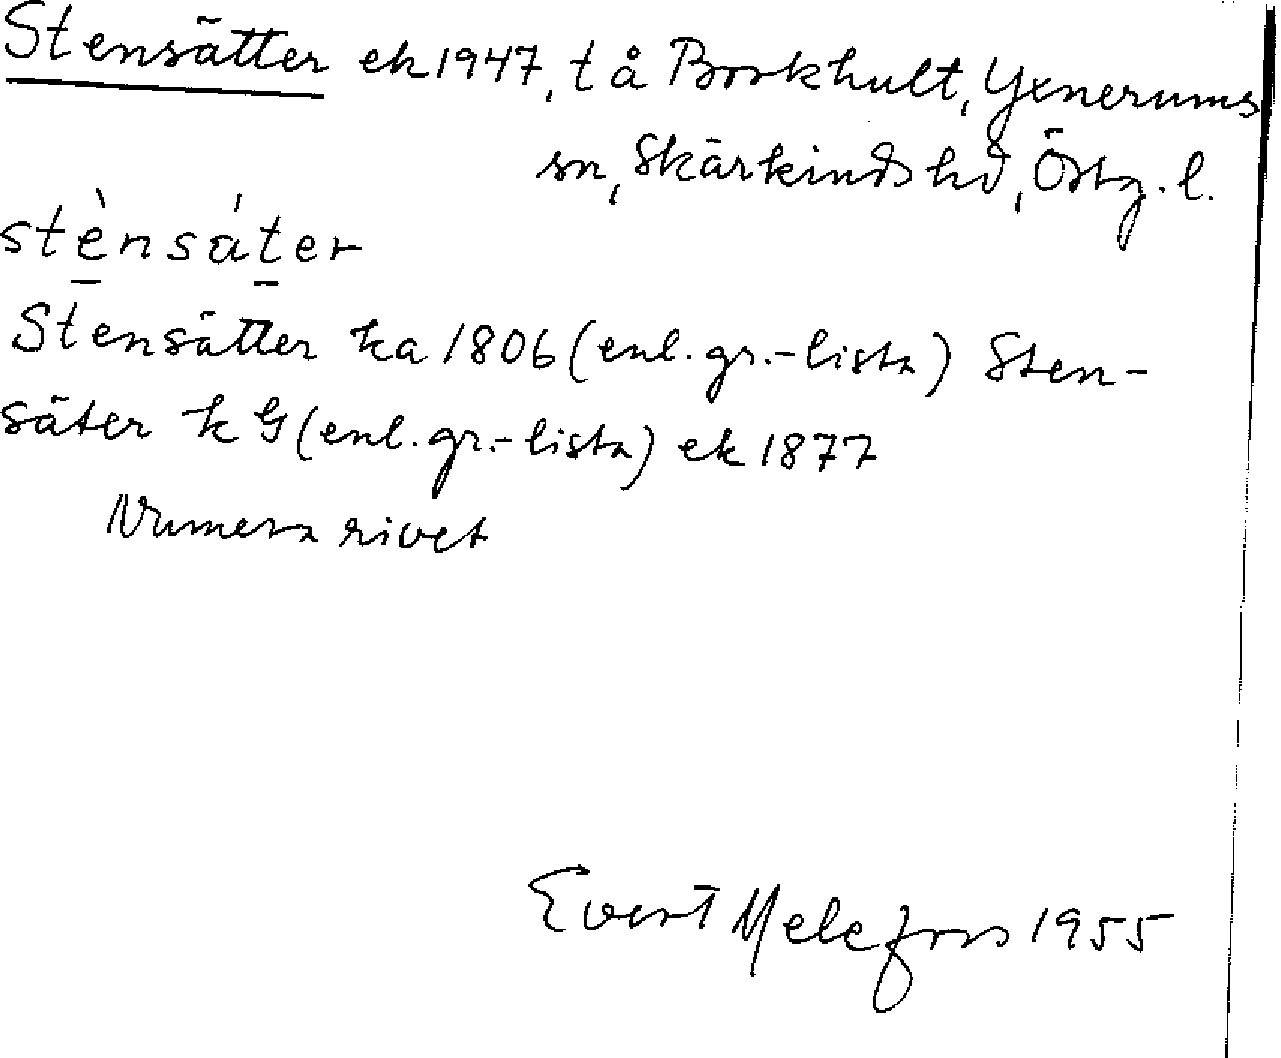 Stensätter ek 1947, t å Borkhult, Yxnerums
sn, Skärkinds hd, Östg. l.
stè̠nsát̠er
Stensätter ka 1806 (enl. gr.-lista) Sten-
säter k G (enl. gr.-lista) ek 1877
Numera rivet
Evert Melefors 1955